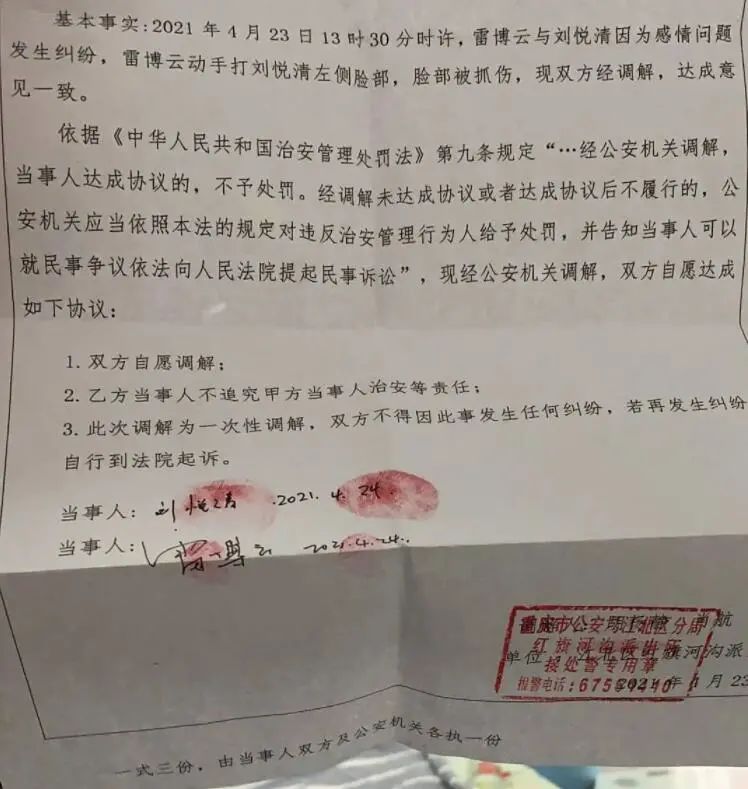 基本事实：2021 年 4 月 23 日 13 时 30 分时许，雷博云与刘悦清因为感情问题
发生纠纷，雷博云动手打刘悦清左侧脸部，脸部被抓伤，现双方经调解，达成意
见一致。
依据《中华人民共和国治安管理处罚法》第九条规定“…经公安机关调解，
当事人达成协议的，不予处罚。经调解未达成协议或者达成协议后不履行的，公
安机关应当依照本法的规定对违反治安管理行为人给予处罚，并告知当事人可以
就民事争议依法向人民法院提起民事诉讼”，现经公安机关调解，双方自愿达成
如下协议：
1. 双方自愿调解；
2. 乙方当事人不追究甲方当事人治安等责任；
3. 此次调解为一次性调解，双方不得因此事发生任何纠纷，若再发生纠纷
自行到法院起诉。
当事人：刘悦清 2021. 4. 24.
当事人：雷博云 2021.4.24.
重庆市公安局江北区分局
肖航
红旗河沟派出所
单位
河沟派
接处警专用章
报警电话：
年 4 月 23
一式三份，由当事人双方及公安机关各执一份